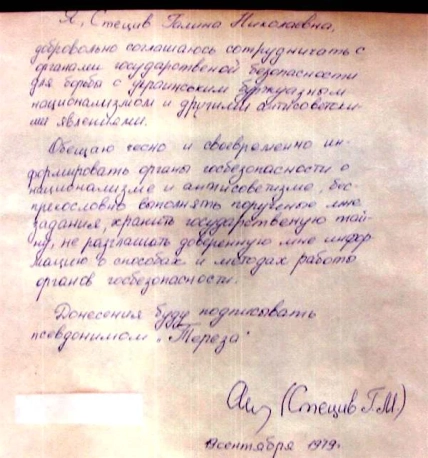 Я, Стецив Галина Николаевна,
добровольно соглашаюсь сотрудничать с
органами государственой безопасности
для борьбы с украинским буржуазным
национализмом и другими антисоветски-
ми явлениями.
Обещаю честно и своевременно ин-
формировать органы госбезопасности о
национализме и антисоветизме, бес-
прекословно выполнять порученое мне
задания, хранить государственую тай-
ну, не разглашать доверенную мне инфор-
мацию о способах и методах работы
органов госбезопасности.
Донесения буду подписывать
псевдонимом "Тереза"
(Стецив Г.М.)
сентября 1979г